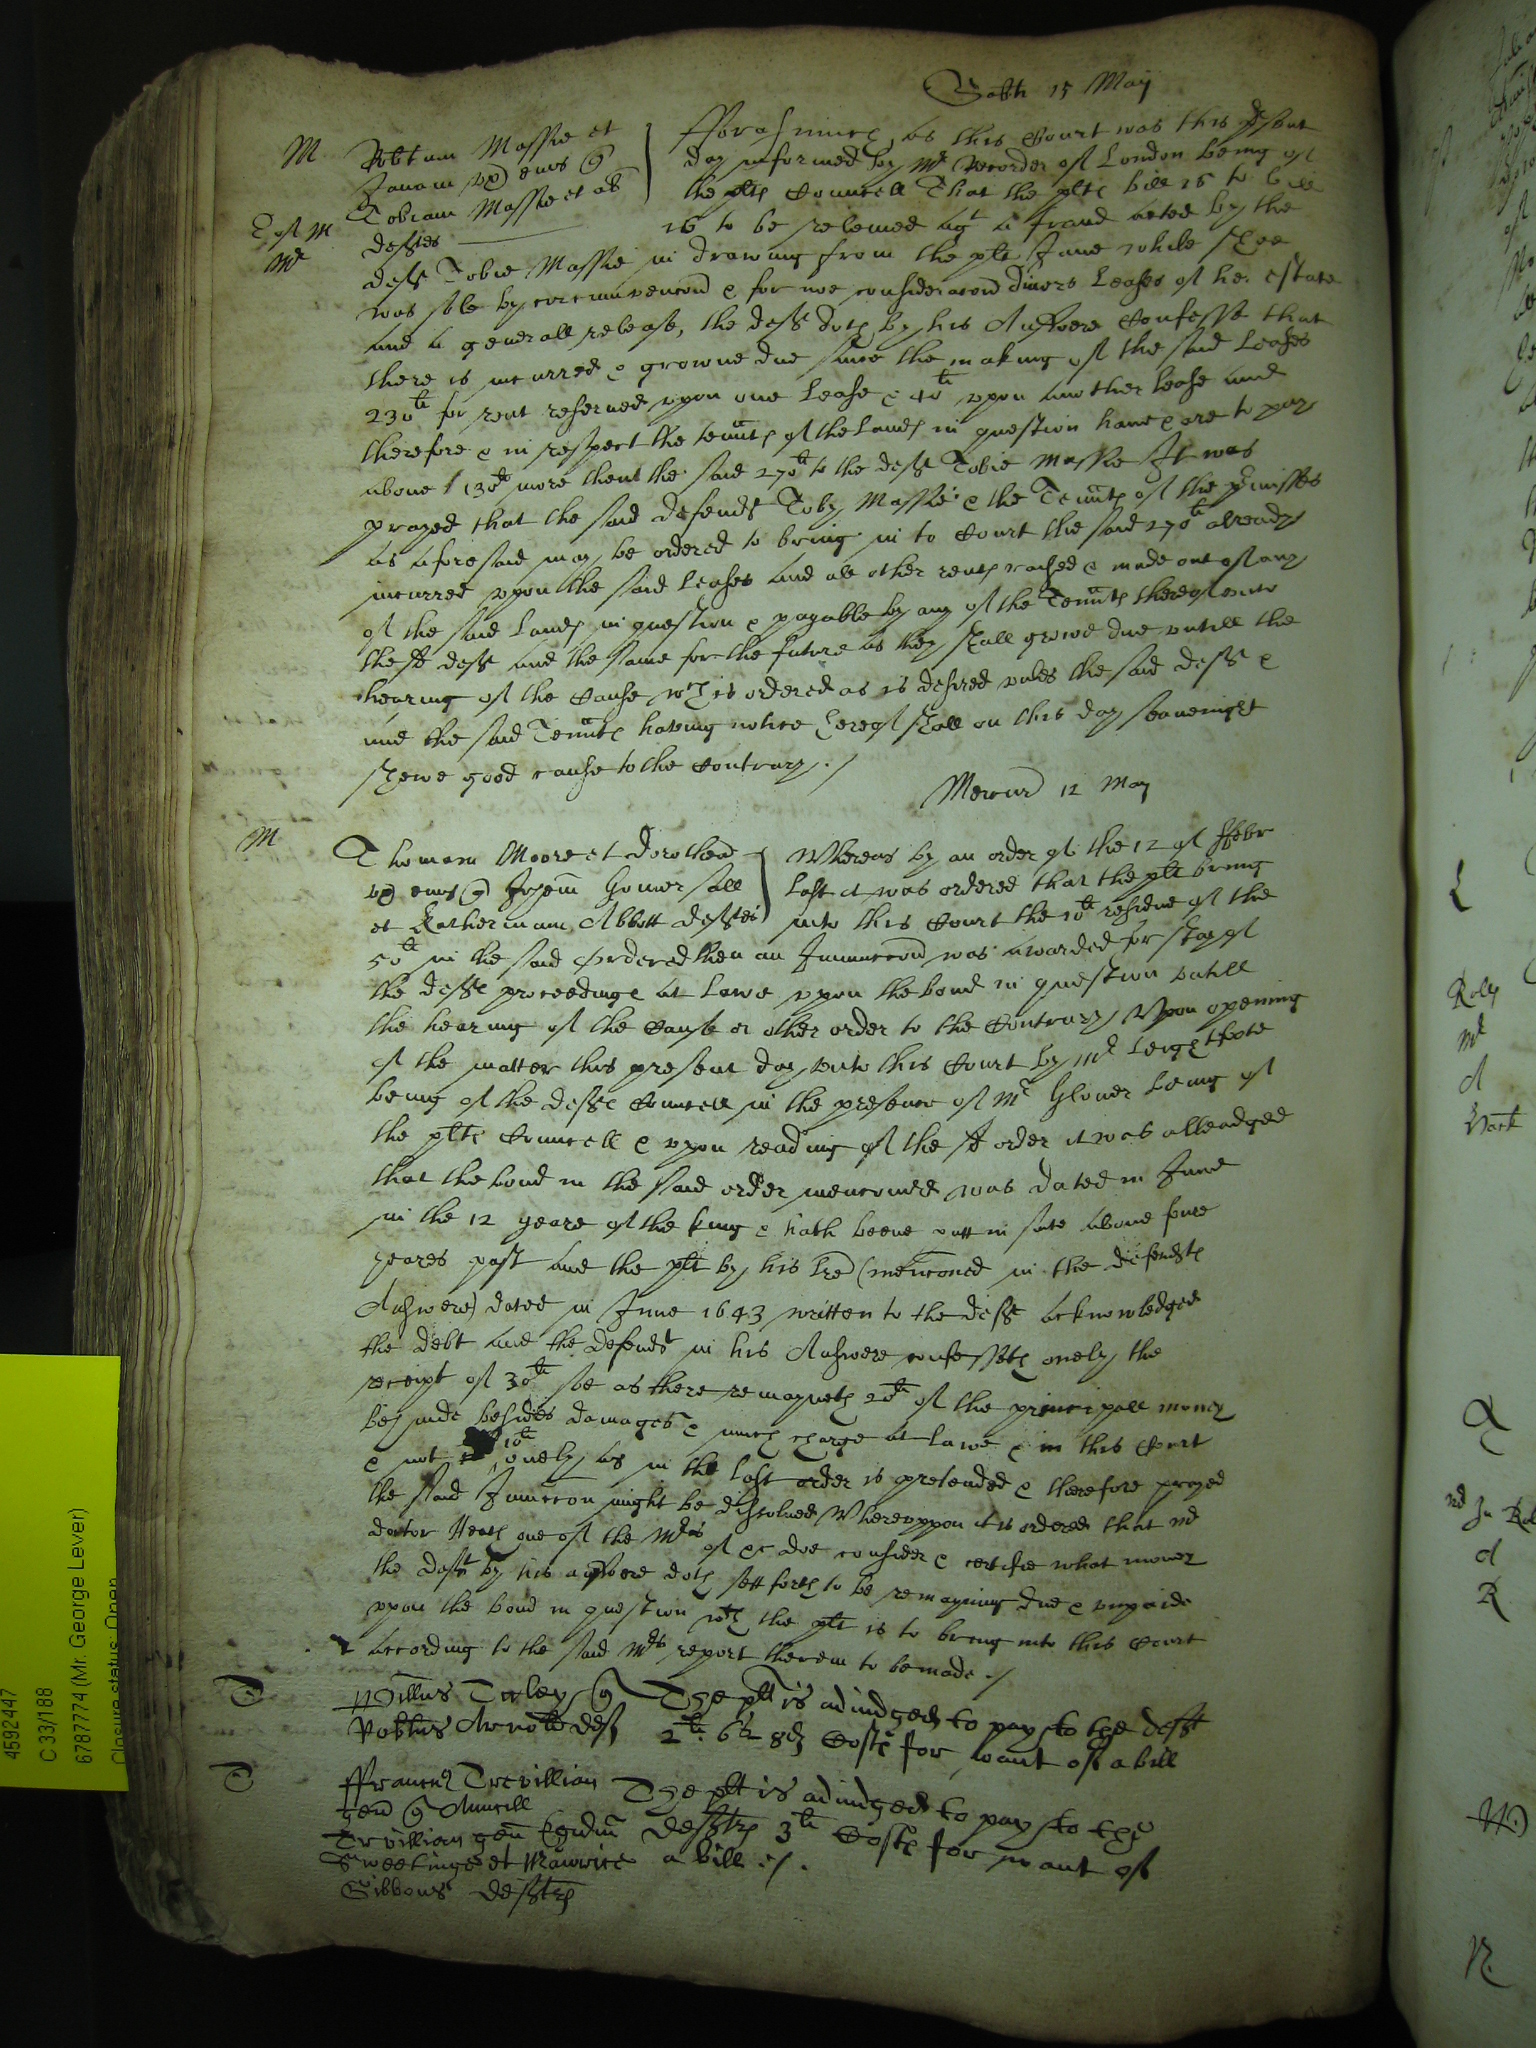 Sabti 15 May
M Robtum Massie et
Janam uxem eius
Tobiam Massie et al
deftes
E of M
Mr
fforasmuch as this Court was this psent
day informed by Mr Recorder of London being of
the plts Councell That the plts bill is to
is to be releived agt a fraud acted by the
deft Tobie Massie in drawing from the plt Jane while shee
was sole by circumvencon & for noe consideracon divers Leases of her estate
and a generall release, the deft doth by his Answere Confesse that
there is incurred & growne due since the making of the said Leases
230li for rent reserved upon one Lease & 40li upon another lease and
therefore & in respect the tennts of the Lands in question have & are to pay
above 130li more then the said 270li to the deft Tobie Massie It was
prayed that the said defendt Toby Massie & the Tennts of the pmisses
as aforesaid may be ordered to bring in to Court the said 270li already
incurred upon the said Leases and all other rents raised & made out of any
of the said Lands in question & payable by any of the Tennts thereof unto
the sd deft and the same for the future as they shall growe due untill the
hearing of the Cause wch is ordered as is desired unles the said deft &
and the said Tennts having notice hereof shall on this day seavenight
shewe good cause to the Contrary./
Mercur 12 May
M
Thomam Moore et Dorothea
ux eius Gomersall
et Katherinam Abbott deftes
Whereas by an order of the 12 of ffebr
last it was ordered that the plt bring
into this Court the 10li residue of the
50li in the said order & then an Iniunccon was awarded for stay of
the defts proceedings at Lawe upon the bond in question untill
the hearing of the Cause or other order to the Contrary Upon opening
of the matter this present day unto this Court by Mr
being of the defts Councell in the presence of Mr Glover being of
the plts Councell & upon reading of the sd order it was alleadged
that the bond in the said order mencioned was dated in June
in the 12 yeare of the king & hath beene putt in sute above foure
yeares past and the plt by his lre (mencioned in the defendts
Answere) dated in June 1643 written to the deft acknowledged
the debt and the defendt in his Answere confesseth onely the
receipt of 30li soe as there remayneth 20li of the principall money
behinde besides damages & much charge at Lawe & in this Court
& not 10li onely as in the last order is pretended & therefore prayed
the said Iniunccon might be dissolved Whereuppon it is ordered that mr
doctor Heath one of the Mrs of &c doe consider & certifie what money
the deft by his answere doth sett forth to be remayning due & unpaide
upon the bond in question wch the plt is to bring into this Court
according to the said Mrs report therein to be made./
T
Willus Turley
Robtus Arnold deft
The plt is adiudged to pay to the deft
2li 6s 8d Costs for want of a bill
T
ffrancus Trevillian
gen
Trevillian gen
Sweetinge et Maurice
Gibbons deftes
The plt is adiudged to pay to the
deftes 3li Costs for want of
a bill ./.
4592447
C 33/188
6787774 (Mr. George Lever)
Closure status: Open